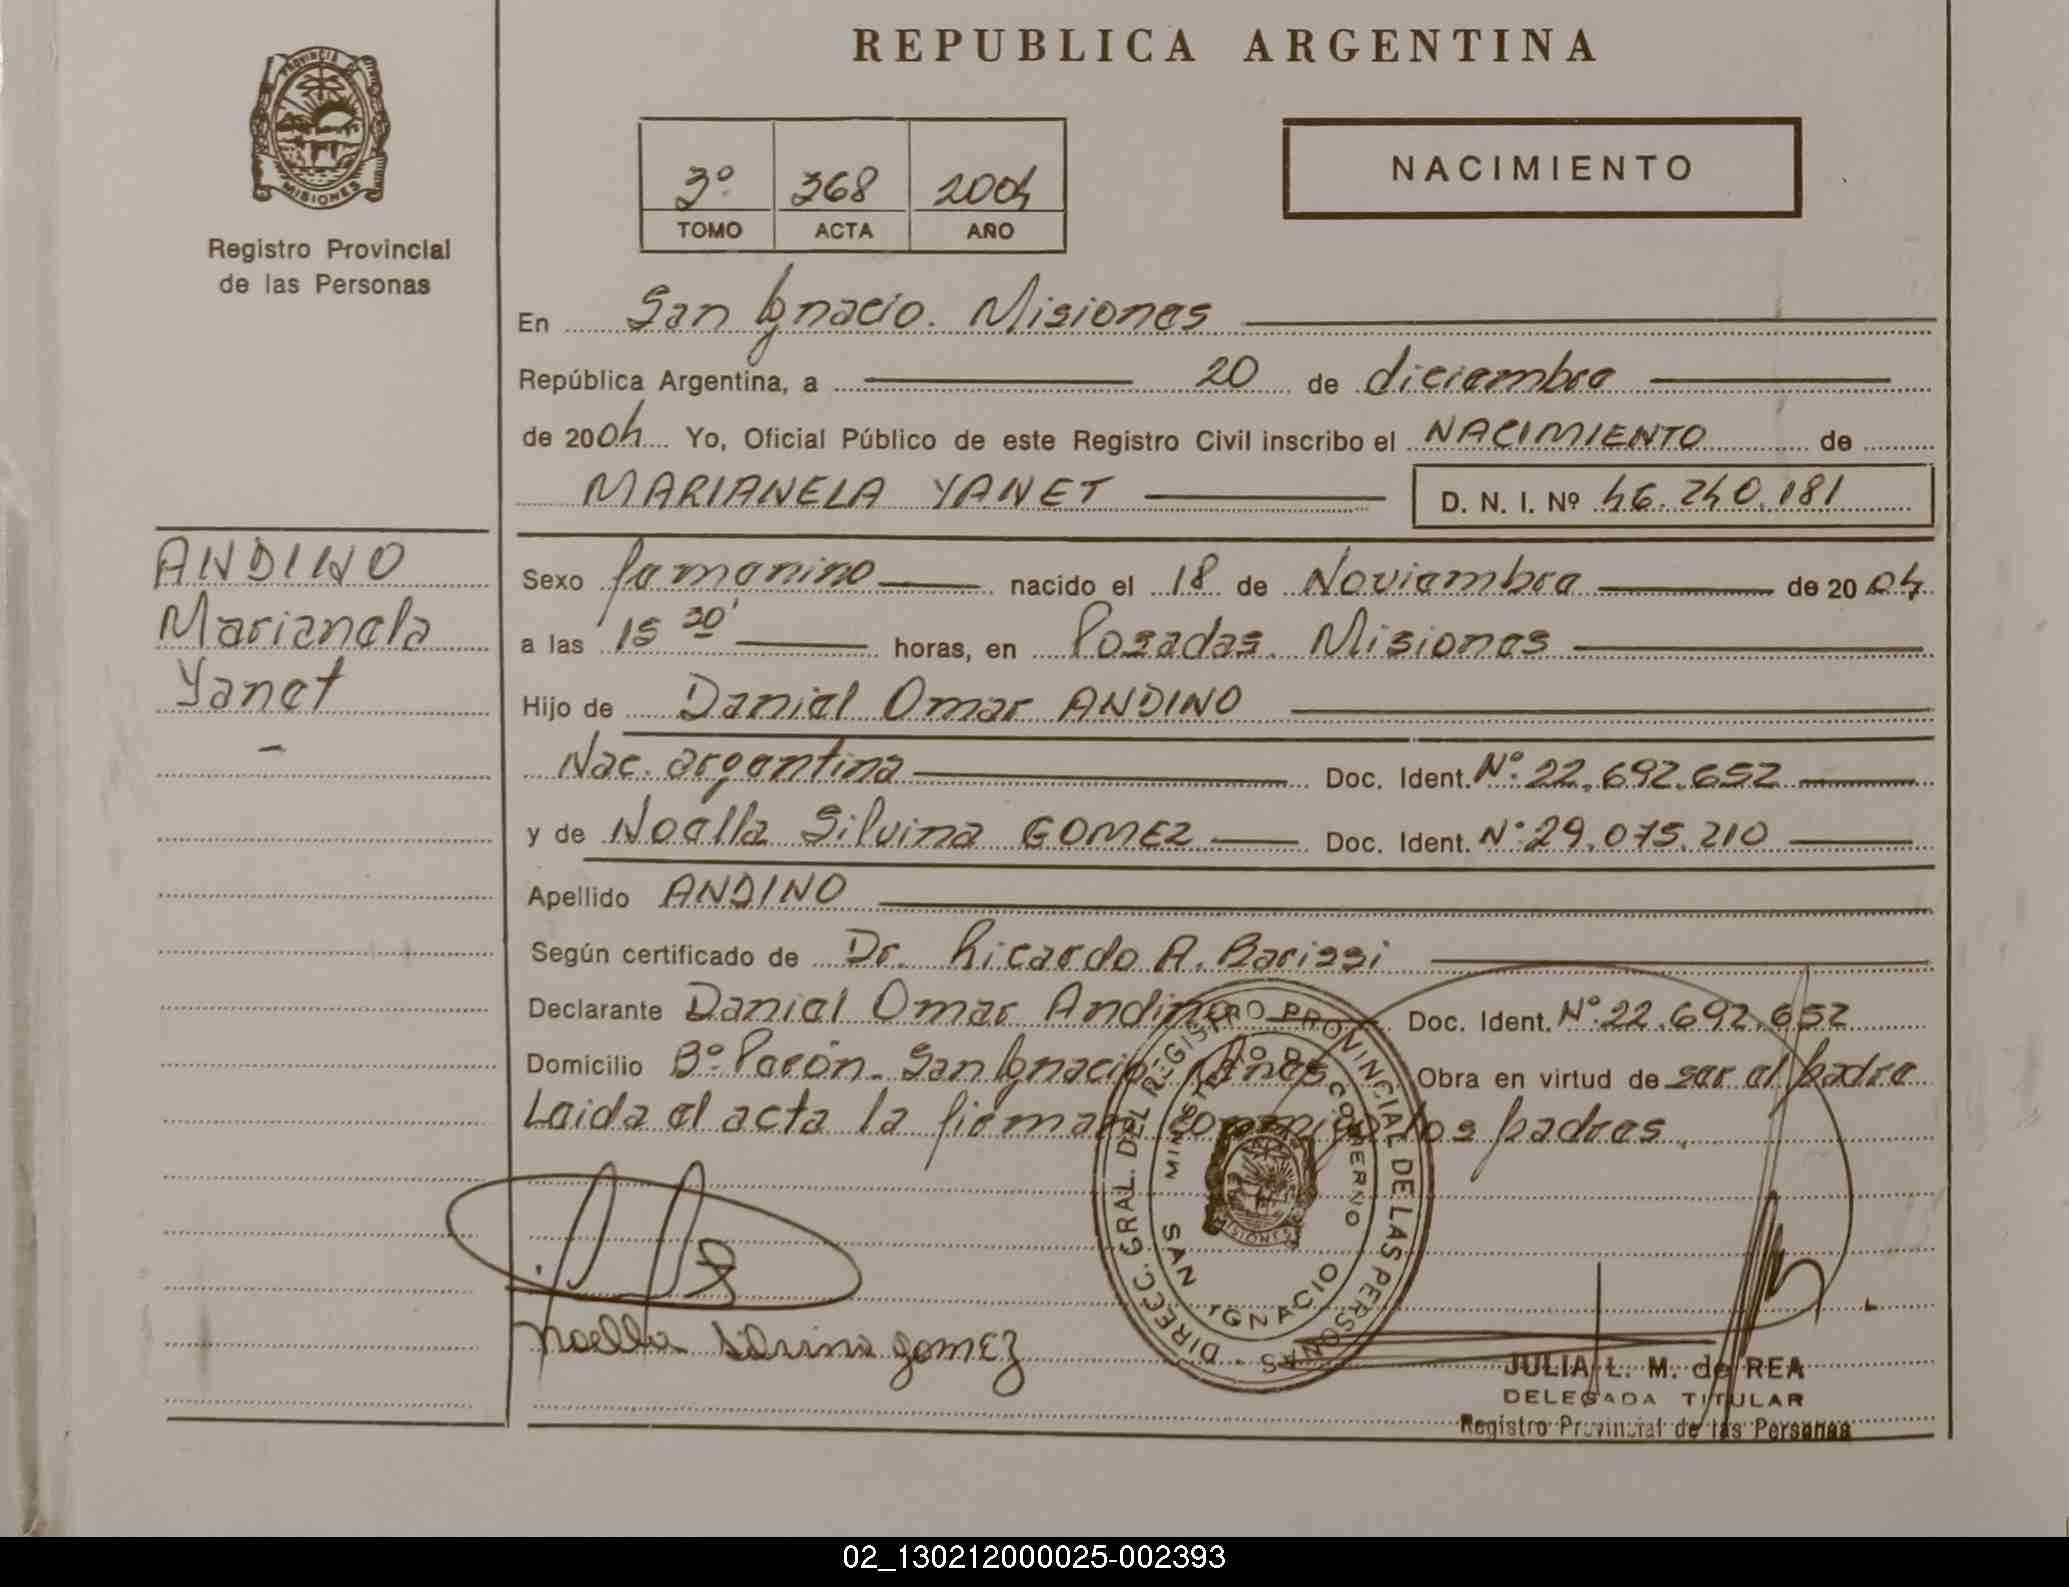 REPUBLICA ARGENTINA
PROVINCIA DE
MISIONES
Registro Provincial
de las Personas
3º 368 2004
TOMO ACTA AÑO
NACIMIENTO
En San Ignacio. Misiones
República Argentina, a 20 de diciembre
de 2004 Yo, Oficial Público de este Registro Civil inscribo el NACIMIENTO de
MARIANELA YANET D. N. I. Nº 46.240.181
ANDINO
Marianela
Yanet
Sexo femenino nacido el 18 de Noviembre de 2004
a las 15 30' horas, en Posadas. Misiones
Hijo de Daniel Omar ANDINO
Nac. argentina Doc. Ident. Nº 22.692.652
y de Noelia Silvina GOMEZ Doc. Ident. Nº 29.075.210
Apellido ANDINO
Según certificado de Dr. Ricardo A. Barissi
Declarante Daniel Omar Andino Doc. Ident. Nº 22.692.652
Domicilio Bº Perón. San Ignacio Mnes Obra en virtud de ser el padre
Leida el acta la firman conmigo los padres.
DIRECC. GRAL. DEL REGISTRO PROVINCIAL DE LAS PERSONAS
MINISTERIO DE GOBIERNO
SAN IGNACIO
MISIONES
Noelia Silvina gomez
JULIA L. M. de REA
DELEGADA TITULAR
Registro Provincial de las Personas
02_130212000025-002393